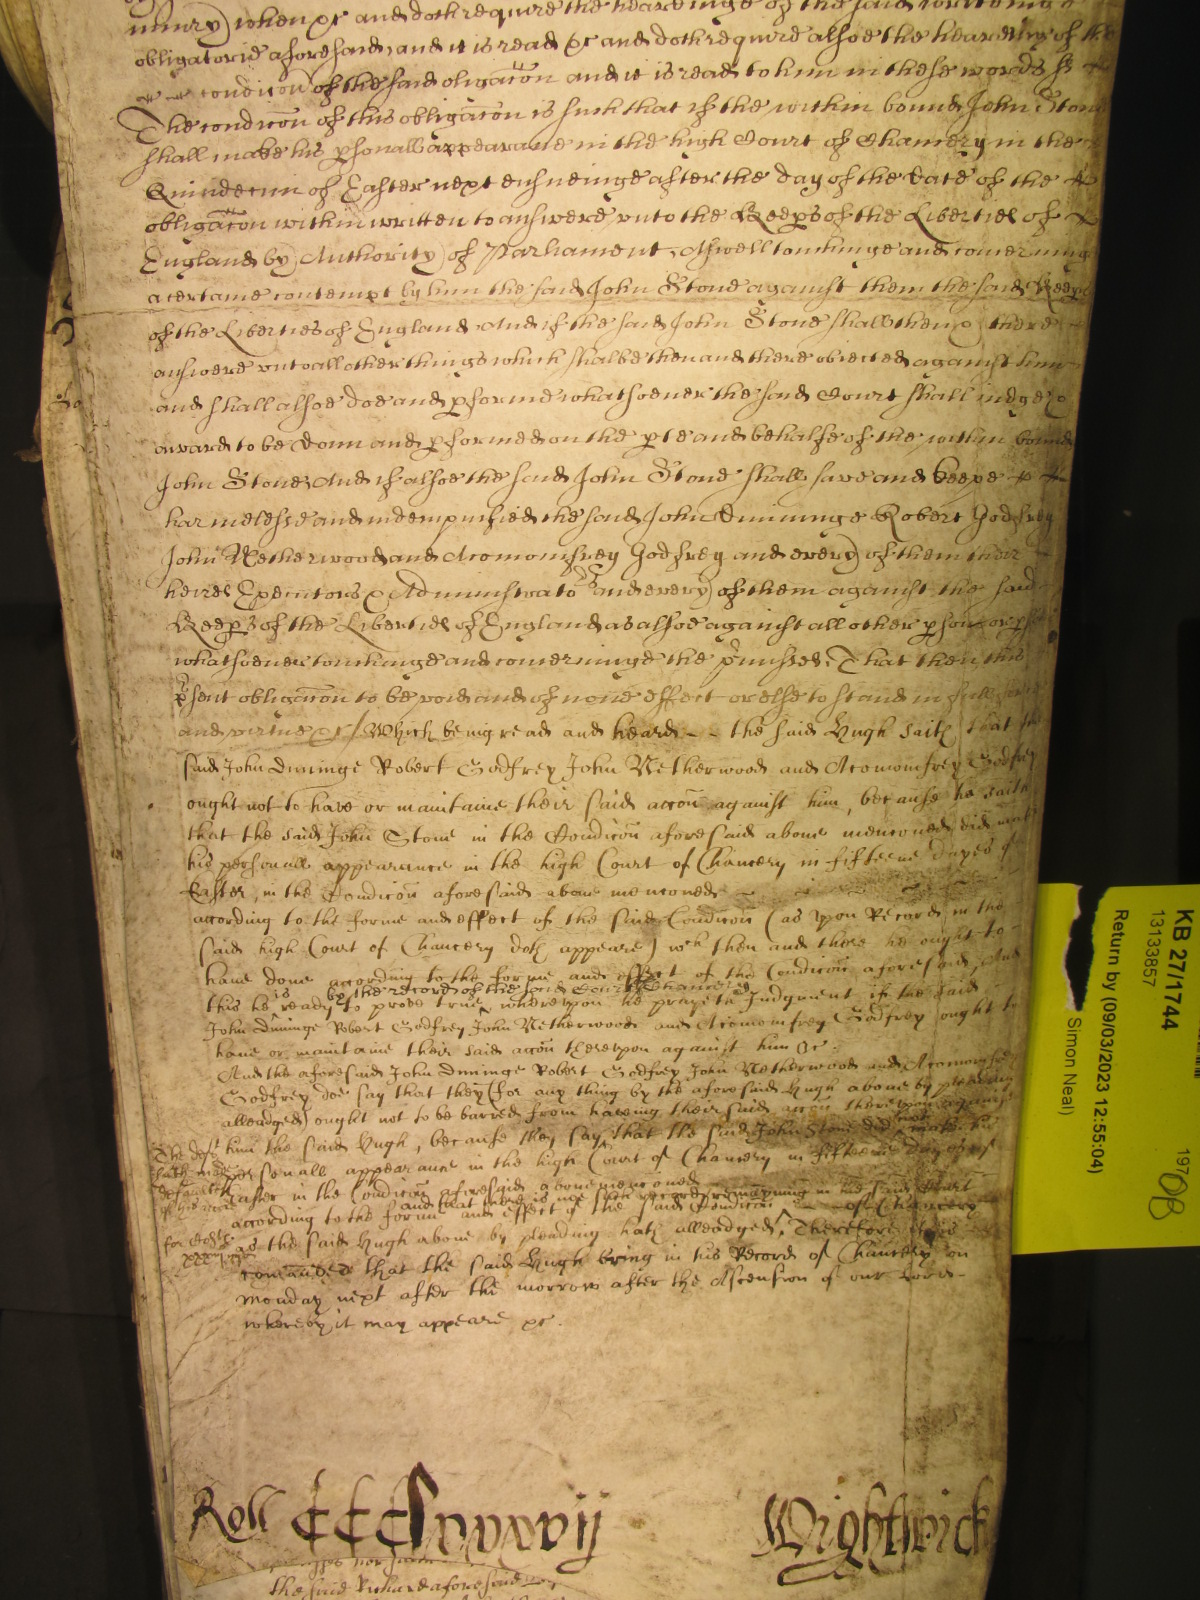 iniury) when &c and doth require the heareinge of the said writeing
obligatorie aforesaid, and it is read &c and doth require alsoe the heareing of the
condicōn of the said oligacōn and it is read to him in these words ss
The condicōn of this obligacōn is such that if the within bound John Stone
shall make his psonall appearance in the high Court of Chancery in the
Quindecim of Easter next ensueinge after the day of the date of the
obligacōn within written to answere vnto the Keeps of the Liberties of
England by Authority of Parliament, Aswell touchinge and concerninge
a certaine contempt by him the said John Stone against them the said Keeps
of the Liberties of England And if the said John Stone shall then & there
answere vnto all other things which shalbe then and there obiected against him
and shall alsoe doe and pforme whatsoeuer the said Court shall iudge &
award to be donn and pformed on the pte and behalfe of the within bound
John Stone, And if alsoe the said John Stone shall saue and keepe
harmelesse and indempnified the said John Dninge Robert Godfrey
John Netherwood and Acomomfrey Godfrey and every of them their
heires Executors & Administrators and every of them against the said
Keeps of the Liberties of England as alsoe against all other pson or psons
whatsoeuer touchinge and concerninge the pmisses, That then this
psent obligacōn to be void and of none effect or else to stand in full force
and virtue &c / Which being read and heard - - the said Hugh saith that the
said John Dninge Robert Godfrey John Netherwood and Acomomfrey Godfrey
ought not to have or maintaine their said accōn against him, because he saith
that the said John Stone in the Condicōn aforesaid aboue menconed did make
his personall appearance in the high Court of Chancery in fifteene dayes of
Easter, in the Condicōn aforesaid aboue menconed
according to the forme and effect of the said Condicōn (as vpon Record in the
said high Court of Chancery doth appeare) wch then and there he ought to
haue done according to the forme and effect of the Condicōn aforesaid, And
by the record of the said Court of Chancery
this he is ready to prove true, wherevpon he prayeth Judgment if the said
John Dninge Robert Godfrey John Netherwood and Acomomfrey Godfrey ought to
haue or maintaine their said accōn therevpon against him &c.
And the aforesaid John Dninge Robert Godfrey John Netherwood and Acomomfrey
Godfrey doe say that they (for any thing by the aforesaid Hugh aboue by pleading
alleadged) ought not to be barred from having their said accōn therevpon against
him the said Hugh, because they say that the said John Stone did not make his
The deft
hath made
personall appearance in the high Court of Chancery in fifteene dayes of
default
Easter in the Condicōn aforesaid aboue menconed
and that there is not such record remayning in the said Court
of his
according to the forme and effect of the said Condicōn - - of Chancery
for
as the said Hugh aboue by pleading hath alleadged, Therefore it is
comanded that the said Hugh bring in his Record of Chancery on
Monday next after the morrow after the Ascension of our Lord
whereby it may appeare &c.
Roll CCClxxxvij Wightwick
the said Richard aforesaid
KB 27/1744
13133857
Return by (09/03/2023 12:55:04)
Simon Neal)